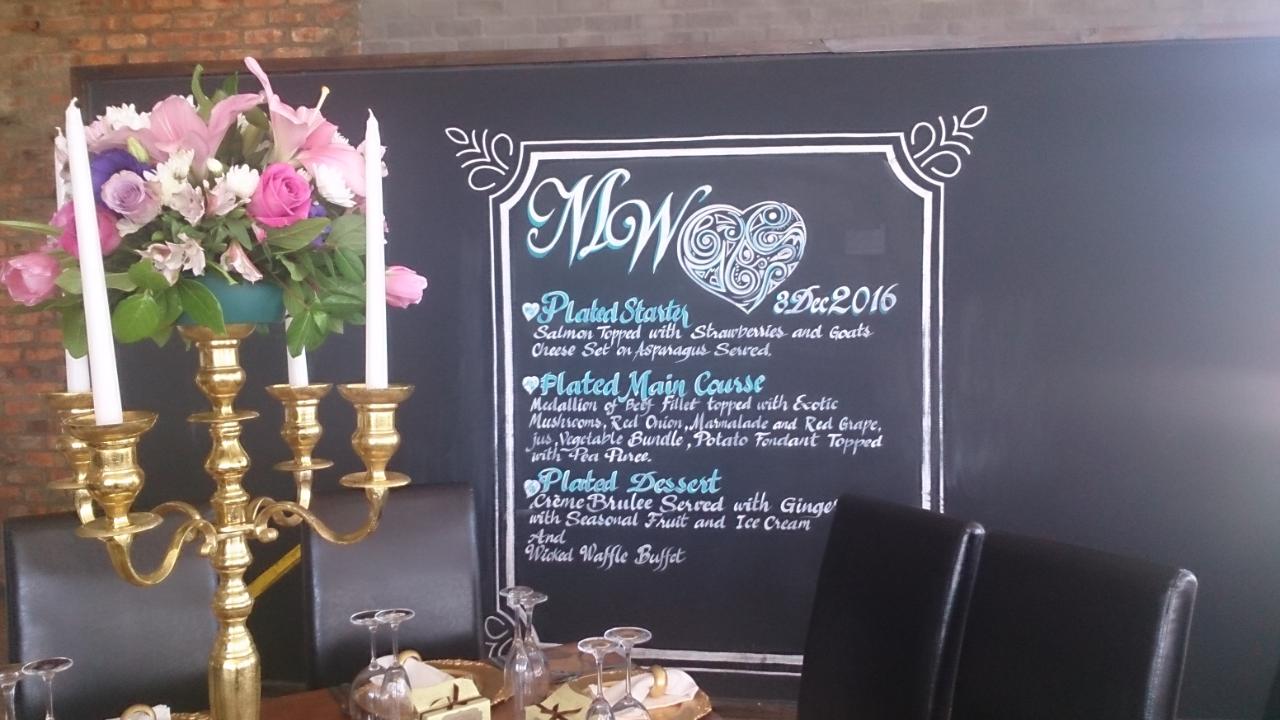 MW
3 Dec 2016
Plated Starter
Salmon Topped with Strawberries and Goats
Cheese Set on Asparagus Served.
Plated Main Course
Medallion of Beef Fillet topped with Exotic
Mushrooms, Red Onion, Marmalade and Red Grape,
jus, Vegetable Bundle, Potato Fondant Topped
with Pea Puree.
Plated Dessert
Crème Brulee Served with Ginge
with Seasonal Fruit and Ice Cream
And
Wicked Waffle Buffet